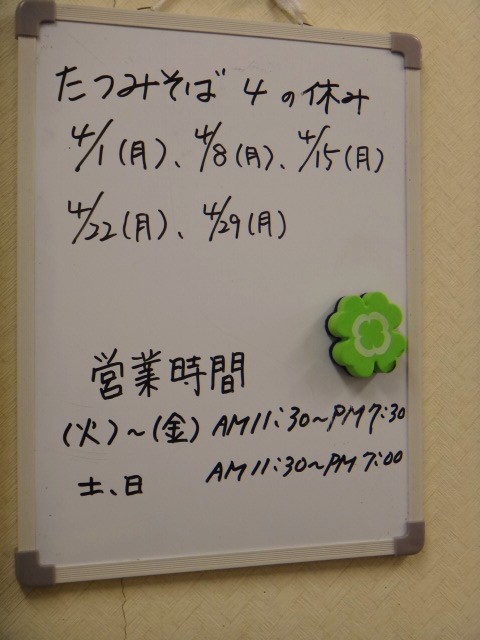 たつみそば 4の休み
4/1(月)、4/8(月)、4/15(月)
4/22(月)、4/29(月)
営業時間
(火)~(金) AM11:30~PM7:30
土、日 AM11:30~PM7:00